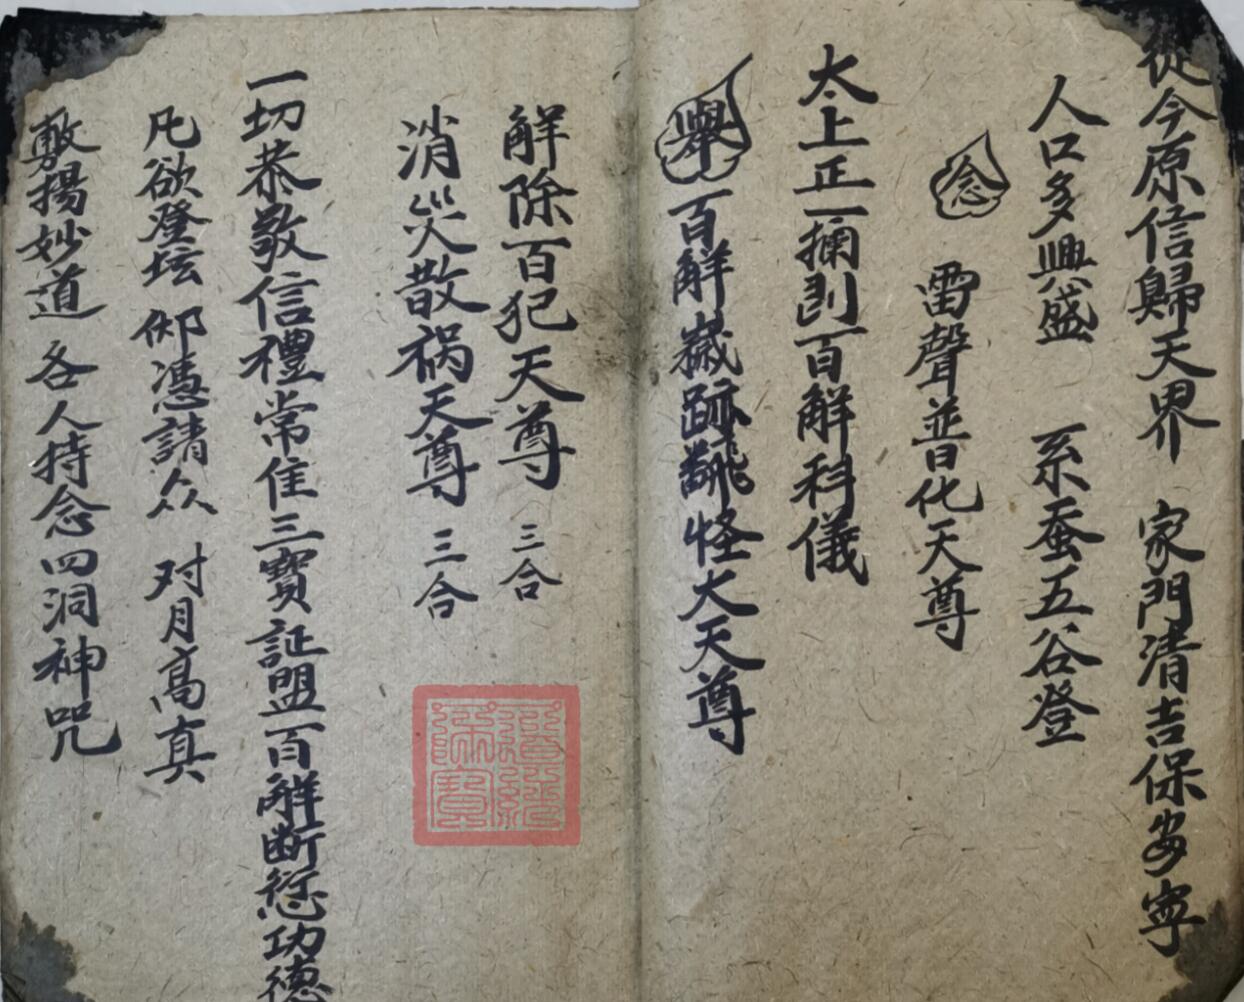 從今原信歸天界 家門清吉保安寧
人口多興盛 系蚕五谷登
念 雷聲普化天尊
太上正一攔割百解科儀
舉 百解 跡 怪大天尊
解除百犯天尊 三合
消災散禍天尊 三合
一切恭敬信禮常住三寶証盟百解断愆功德
凡欲登坛 仰憑請众 对月高真
敷揚妙道 各人持念四洞神咒
道經師寶